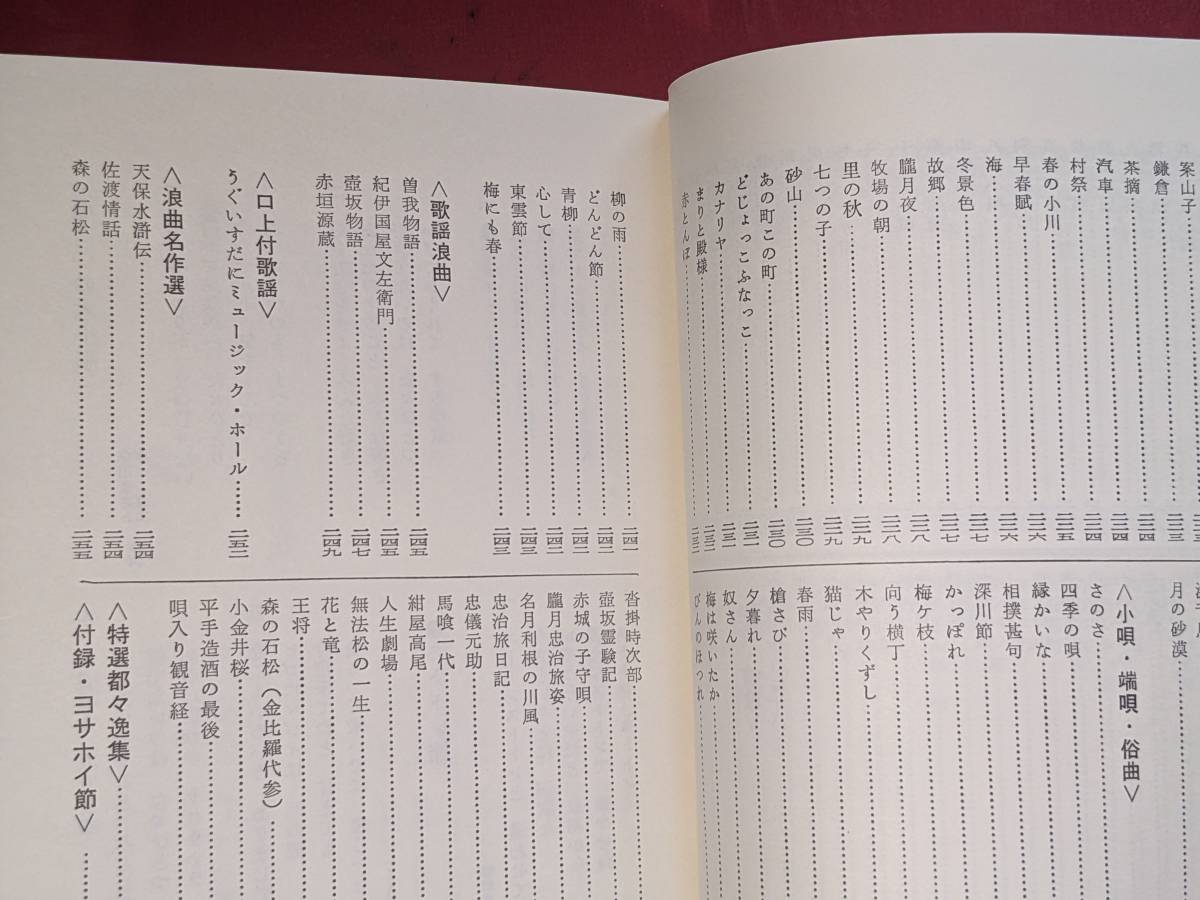 案山子
鎌倉……二二三
茶摘……二二四
汽車……二二四
村祭……二二四
春の小川……二二五
早春賦……二二六
海……二二六
冬景色……二二七
故郷……二二七
朧月夜……二二八
牧場の朝……二二八
里の秋……二二九
七つの子……二二九
砂山……二三〇
あの町この町……二三〇
どじょっこふなっこ……二三一
カナリヤ……二三一
まりと殿様……二三二
赤とんぼ……二三二
月の砂漠……
〈小唄・端唄・俗曲〉
さのさ……
四季の唄……
縁かいな……
相撲甚句……
深川節……
かっぽれ……
梅ケ枝……
向う横丁……
木やりくずし……
猫じゃ……
春雨……
槍さび……
夕暮れ……
奴さん……
梅は咲いたか……
びんのほつれ……
柳の雨……二四一
どんどん節……二四二
青柳……二四二
心して……二四二
東雲節……二四三
梅にも春……二四三
〈歌謡浪曲〉
曽我物語……二四五
紀伊国屋文左衛門……二四五
壺坂物語……二四七
赤垣源蔵……二四九
〈口上付歌謡〉
うぐいすだにミュージック・ホール……二五二
〈浪曲名作選〉
天保水滸伝……二五四
佐渡情話……二五四
森の石松……二五五
沓掛時次郎……
壺坂霊験記……
赤城の子守唄……
朧月忠治旅姿……
名月利根の川風……
忠治旅日記……
忠儀元助……
馬喰一代……
紺屋高尾……
人生劇場……
無法松の一生……
花と竜……
王将……
森の石松（金比羅代参）……
小金井桜……
平手造酒の最後……
唄入り観音経……
〈特選都々逸集〉……
〈付録・ヨサホイ節〉……